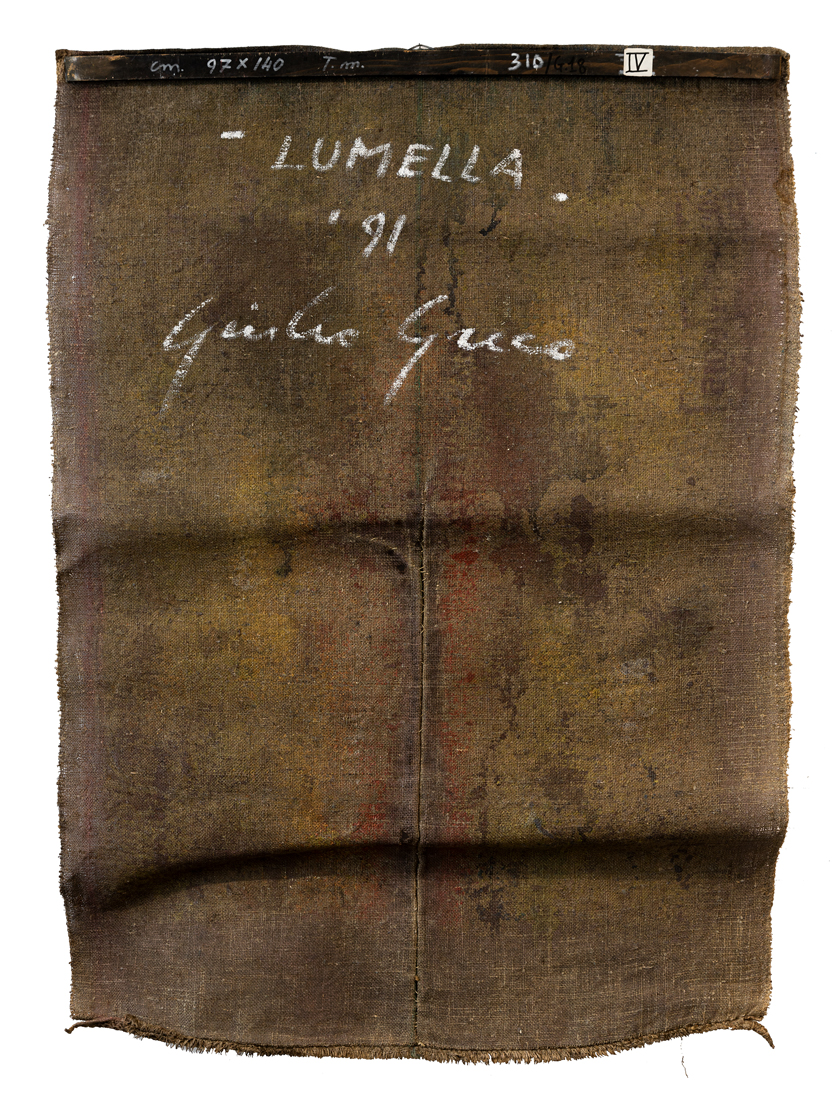 cm. 97 x 140 T. m. 310/418 IV
- LUMELLA.
'91
Giulio Greco